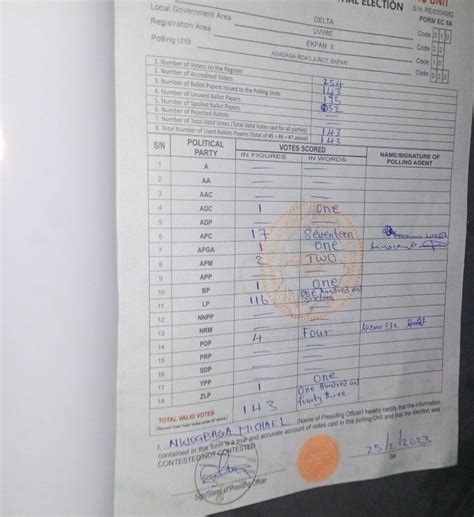 IAL ELECTION
S/N: PE/0004982
FORM EC 8A
Local Government Area DELTA Code 010
Registration Area UVWIE Code
Polling Unit EKPAN II Code
AGADAGA ROAD JUNCT, EKPAN Code
1. Number of Voters on the Register
2. Number of Accredited Voters
3. Number of Ballot Papers Issued to the Polling Unit
4. Number of Unused Ballot Papers
5. Number of Spoiled Ballot Papers
6. Number of Rejected Ballots
7. Number of Total Valid Votes (Total Valid Votes cast for all parties) 143
8. Total Number of Used Ballots Papers (Total of #5 + #6 + #7 above) 143
S/N POLITICAL PARTY VOTES SCORED NAME/SIGNATURE OF POLLING AGENT
IN FIGURES IN WORDS
1 A
2 AA
3 AAC
4 ADC 1 One
5 ADP
6 APC 17 Seventeen
7 APGA 1 One
8 APM 2 TWO
9 APP
10 BP 1 One
11 LP 116 One Hundred and Sixteen
12 NNPP
13 NRM
14 PDP 4 Four
15 PRP
16 SDP
17 YPP 1 One
18 ZLP
TOTAL VALID VOTES 143 One Hundred and fourty three
I, NWOGBAGA MICHAEL (Name of Presiding Officer) hereby certify that the information
contained in this form is a true and accurate account of votes cast in this polling Unit and that the election was
CONTESTED/NOT CONTESTED
25/2/2023
Sign/Stamp of Presiding Officer